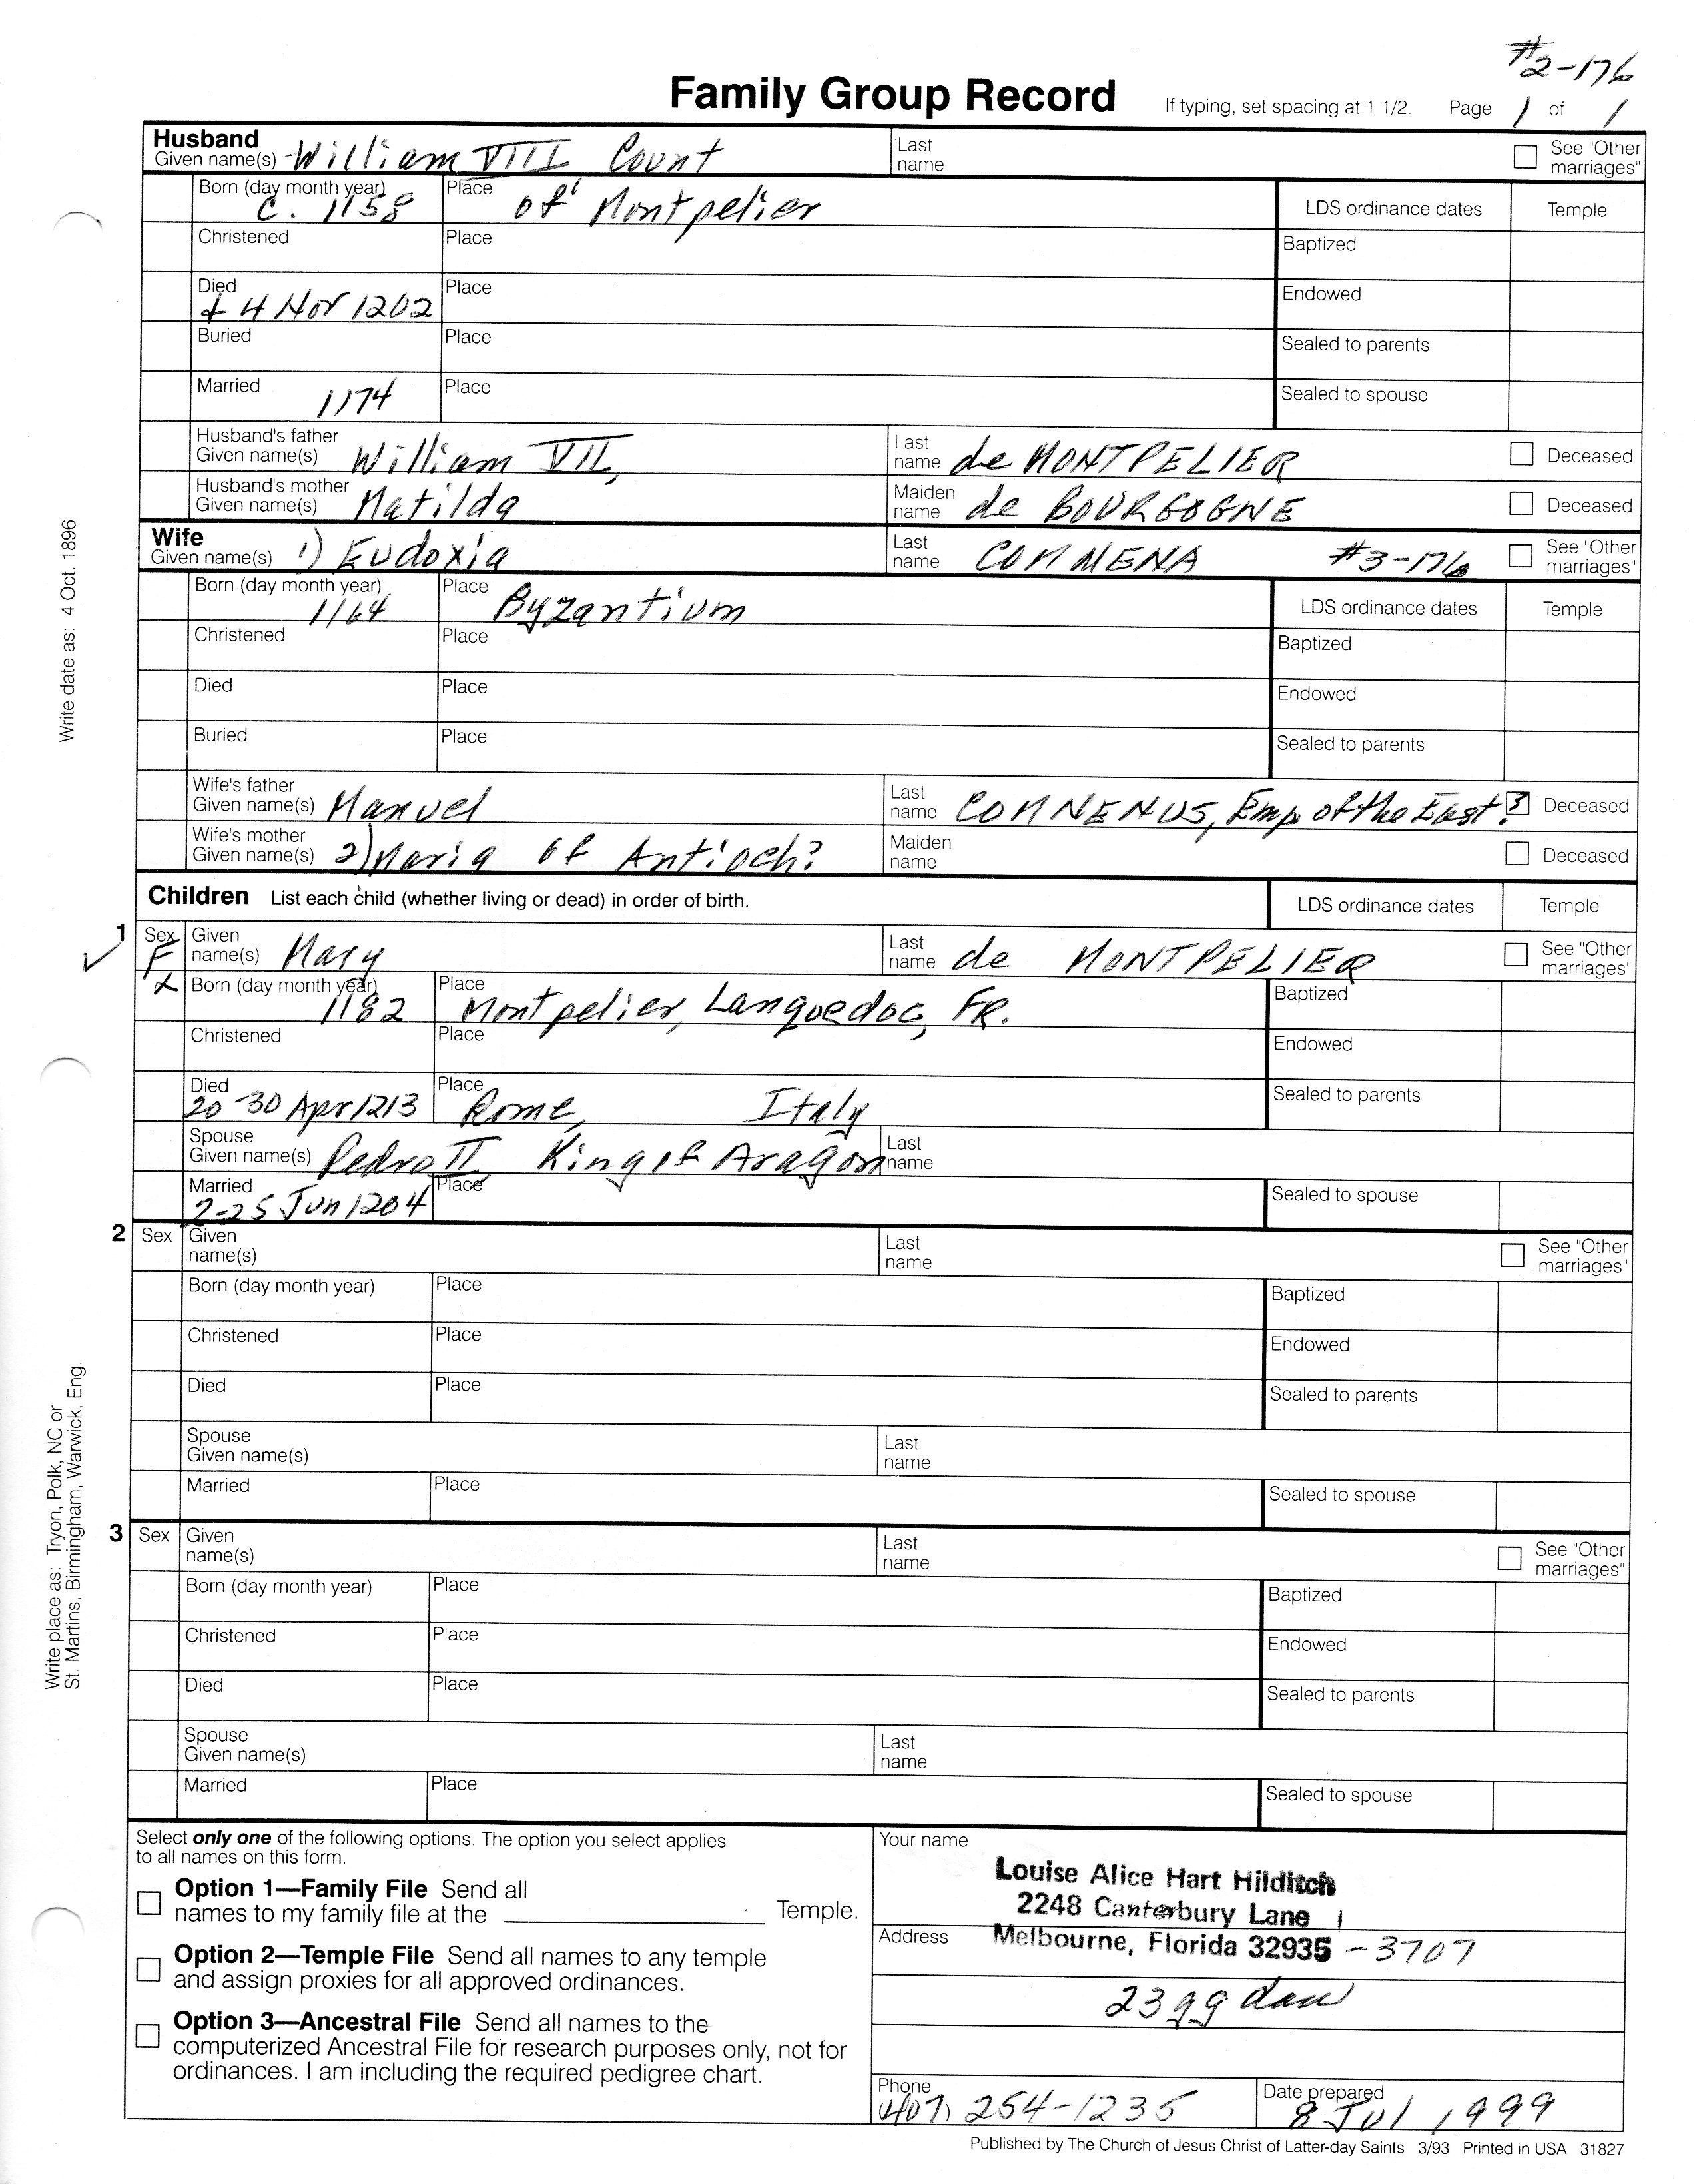 #2-176
Family Group Record If typing, set spacing at 1 1/2. Page 1 of 1
Husband
Given name(s) William VIII Count Last name See "Other marriages"
Born (day month year) c. 1158 Place of Montpelier LDS ordinance dates Temple
Christened Place Baptized
Died 4 Nov 1202 Place Endowed
Buried Place Sealed to parents
Married 1174 Place Sealed to spouse
Husband's father Given name(s) William VII, Last name de MONTPELIER Deceased
Husband's mother Given name(s) Matilda Maiden name de BOURGOGNE Deceased
Wife
Given name(s) 1) Eudoxia Last name COMNENA #3-176 See "Other marriages"
Born (day month year) 1164 Place Byzantium LDS ordinance dates Temple
Christened Place Baptized
Died Place Endowed
Buried Place Sealed to parents
Wife's father Given name(s) Manuel Last name COMNENUS, Emp of the East? Deceased
Wife's mother Given name(s) 2) Maria of Antioch? Maiden name Deceased
Children List each child (whether living or dead) in order of birth. LDS ordinance dates Temple
1 Sex F Given name(s) Mary Last name de MONTPELIER See "Other marriages"
Born (day month year) 1182 Place Montpelier, Languedoc, FR. Baptized
Christened Place Endowed
Died 20-30 Apr 1213 Place Rome, Italy Sealed to parents
Spouse Given name(s) Pedro II, King of Aragon Last name
Married 2-25 Jun 1204 Place Sealed to spouse
2 Sex Given name(s) Last name See "Other marriages"
Born (day month year) Place Baptized
Christened Place Endowed
Died Place Sealed to parents
Spouse Given name(s) Last name
Married Place Sealed to spouse
3 Sex Given name(s) Last name See "Other marriages"
Born (day month year) Place Baptized
Christened Place Endowed
Died Place Sealed to parents
Spouse Given name(s) Last name
Married Place Sealed to spouse
Select only one of the following options. The option you select applies
to all names on this form.
Option 1—Family File Send all
names to my family file at the Temple.
Option 2—Temple File Send all names to any temple
and assign proxies for all approved ordinances.
Option 3—Ancestral File Send all names to the
computerized Ancestral File for research purposes only, not for
ordinances. I am including the required pedigree chart.
Your name
Louise Alice Hart Hilditch
2248 Canterbury Lane
Address Melbourne, Florida 32935 -3707
23 gg dau
Phone (407) 254-1235 Date prepared 8 Jul 1999
Published by The Church of Jesus Christ of Latter-day Saints 3/93 Printed in USA 31827
Write date as: 4 Oct. 1896
Write place as: Tryon, Polk, NC or
St. Martins, Birmingham, Warwick, Eng.